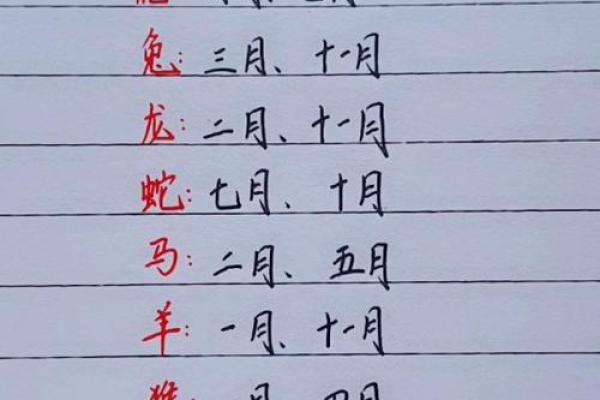 兔：三月、十一月
龙：二月、十一月
蛇：七月、十月
马：二月、五月
羊：一月、十一月
猴：月、四月